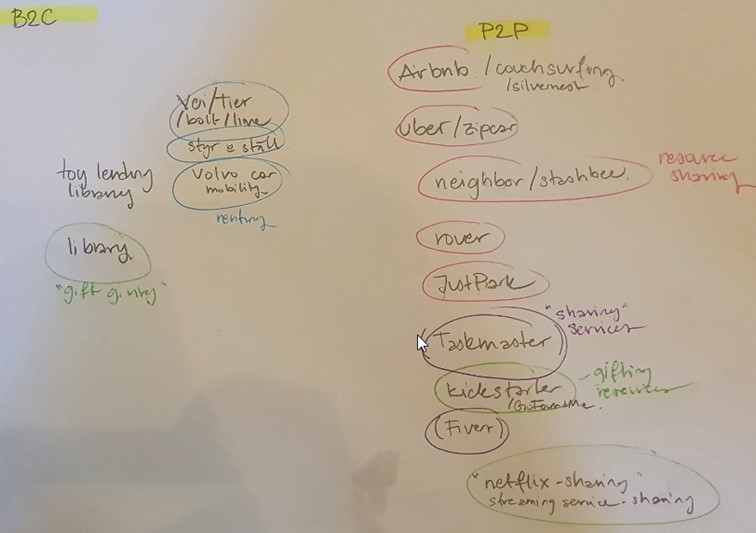 B2C
Voi/tier
/bolt/lime
styr & ställ
Volvo car
mobility
renting
toy lending
library
library
"gift giving"
P2P
Airbnb /couchsurfing
/silvernest
uber/zipcar
neighbor/stashbee.
resource
sharing
rover
JustPark
"sharing"
services
(Taskmaster)
kickstarter
/GoFundMe.
- gifting
resources
(Fiverr)
"netflix-sharing"
streaming service-sharing